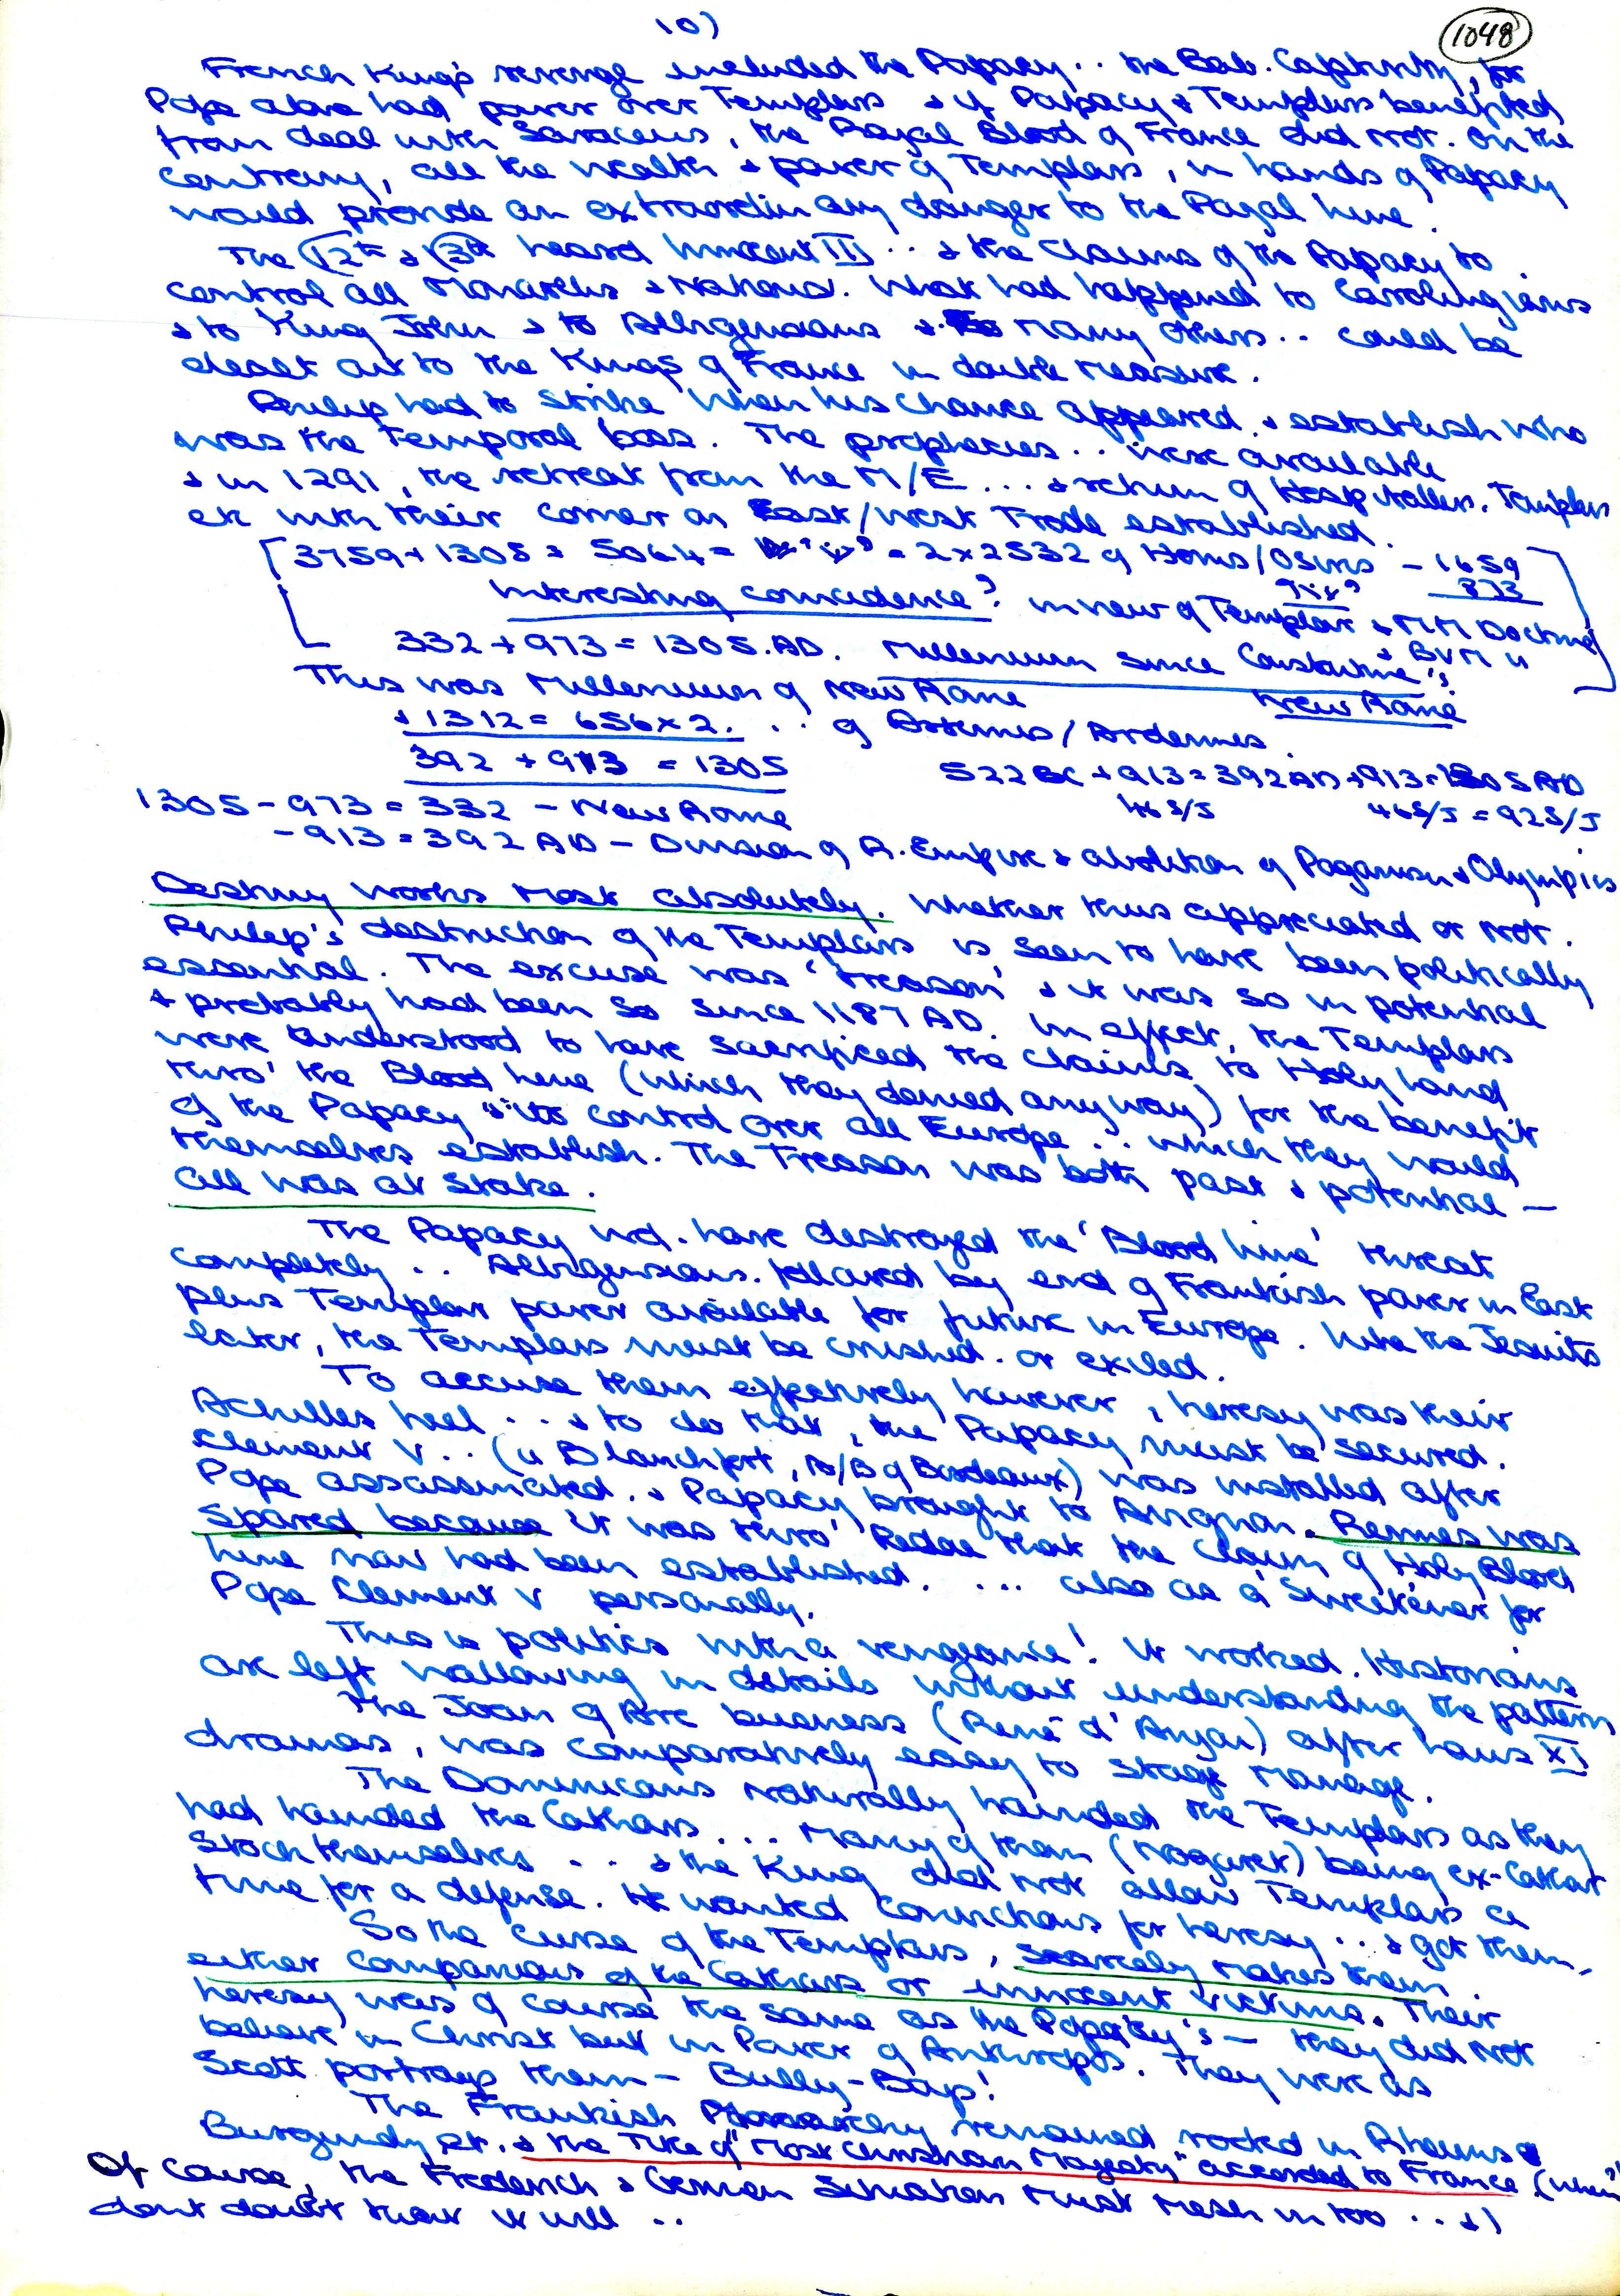 10)
1048
French King's revenge included the Papacy .. the Bab. Captivity, for
Pope alone had power over Templars & if Papacy & Templars benefited
from deal with Saracens, the Royal Blood of France did not. On the
contrary, all the wealth & power of Templars, in hands of Papacy
would provide an extraordinary danger to the Royal line.
The 12th & 13th heard Innocent III .. & the Claims of the Papacy to
control all Monarchs & Nations. What had happened to Carolingians
& to King John & to Albigensians & many others .. could be
dealt out to the Kings of France in double measure.
Philip had to strike when his chance appeared. & establish who
was the Temporal boss. The prophecies .. were available
& in 1291, the retreat from the M/E ... & return of Hospitallers. Templars
etc with their corner on East/West Trade established.
3759 + 1305 = 5064 = = 2 x 2532 of Horus/Osiris - 1659
973
Interesting coincidence? in view of Templar & MM Doctrine
& BVM "
332 + 973 = 1305. AD. Millenium since Constantine's
New Rome
This was Millenium of New Rome
& 1312 = 656 x 2. .. of Artemis/Ardennes.
392 + 913 = 1305
522 BC + 913 = 392 AD + 913 = 1305 AD
46 S/J 46 S/J = 92 S/J
1305 - 973 = 332 - New Rome
- 913 = 392 AD - Division of R. Empire & abolition of Paganism & Olympics
Destiny works most absolutely. Whether thus appreciated or not.
Philip's destruction of the Templars is seen to have been politically
essential. The excuse was 'treason' & it was so in potential
& probably had been so since 1187 AD. In effect, the Templars
were understood to have sacrificed the claims to Holy land
thro' the Blood line (which they denied anyway) for the benefit
of the Papacy & its control over all Europe .. which they would
themselves establish. The Treason was both past & potential —
all was at stake.
The Papacy wd. have destroyed the 'Blood line' threat
completely .. Albigensians. followed by end of Frankish power in East
plus Templar power available for future in Europe. Like the Jesuits
later, the Templars must be crushed. or exiled.
To accuse them effectively however, heresy was their
Achilles heel ... & to do that, the Papacy must be secured.
Clement V .. (a Blanchfort, A/B of Bordeaux) was installed after
Pope assassinated. & Papacy brought to Avignon. Rennes was
spared because it was thro' Redae that the Claim of Holy Blood
line now had been established. ... also as a 'Sweetener' for
Pope Clement V personally.
This is politics with a vengeance! It worked. Historians
are left wallowing in details without understanding the pattern
The Joan of Arc business (René d'Anjou) after Louis XI
dramas, was comparatively easy to stage manage.
The Dominicans naturally hounded the Templars as they
had hounded the Cathars ... Many of them (Nogaret) being ex-Cathar
Stock themselves ... & the King did not allow Templars a
time for a defense. He wanted convictions for heresy .. & got them.
So the Curse of the Templars, scarcely makes them
either Companions of the Cathars or innocent victims. Their
heresy was of course the same as the Papacy's — they did not
believe in Christ but in Power of Anthropos. They were as
Scott portrays them — Bully-Boys!
The Frankish Monarchy remained rooted in Rheims &
Burgundy etc. & the Title of "Most Christian Majesty" accorded to France (when?)
Of course, the Frederick & German Situation must mesh in too ... &
dont doubt that it will ..